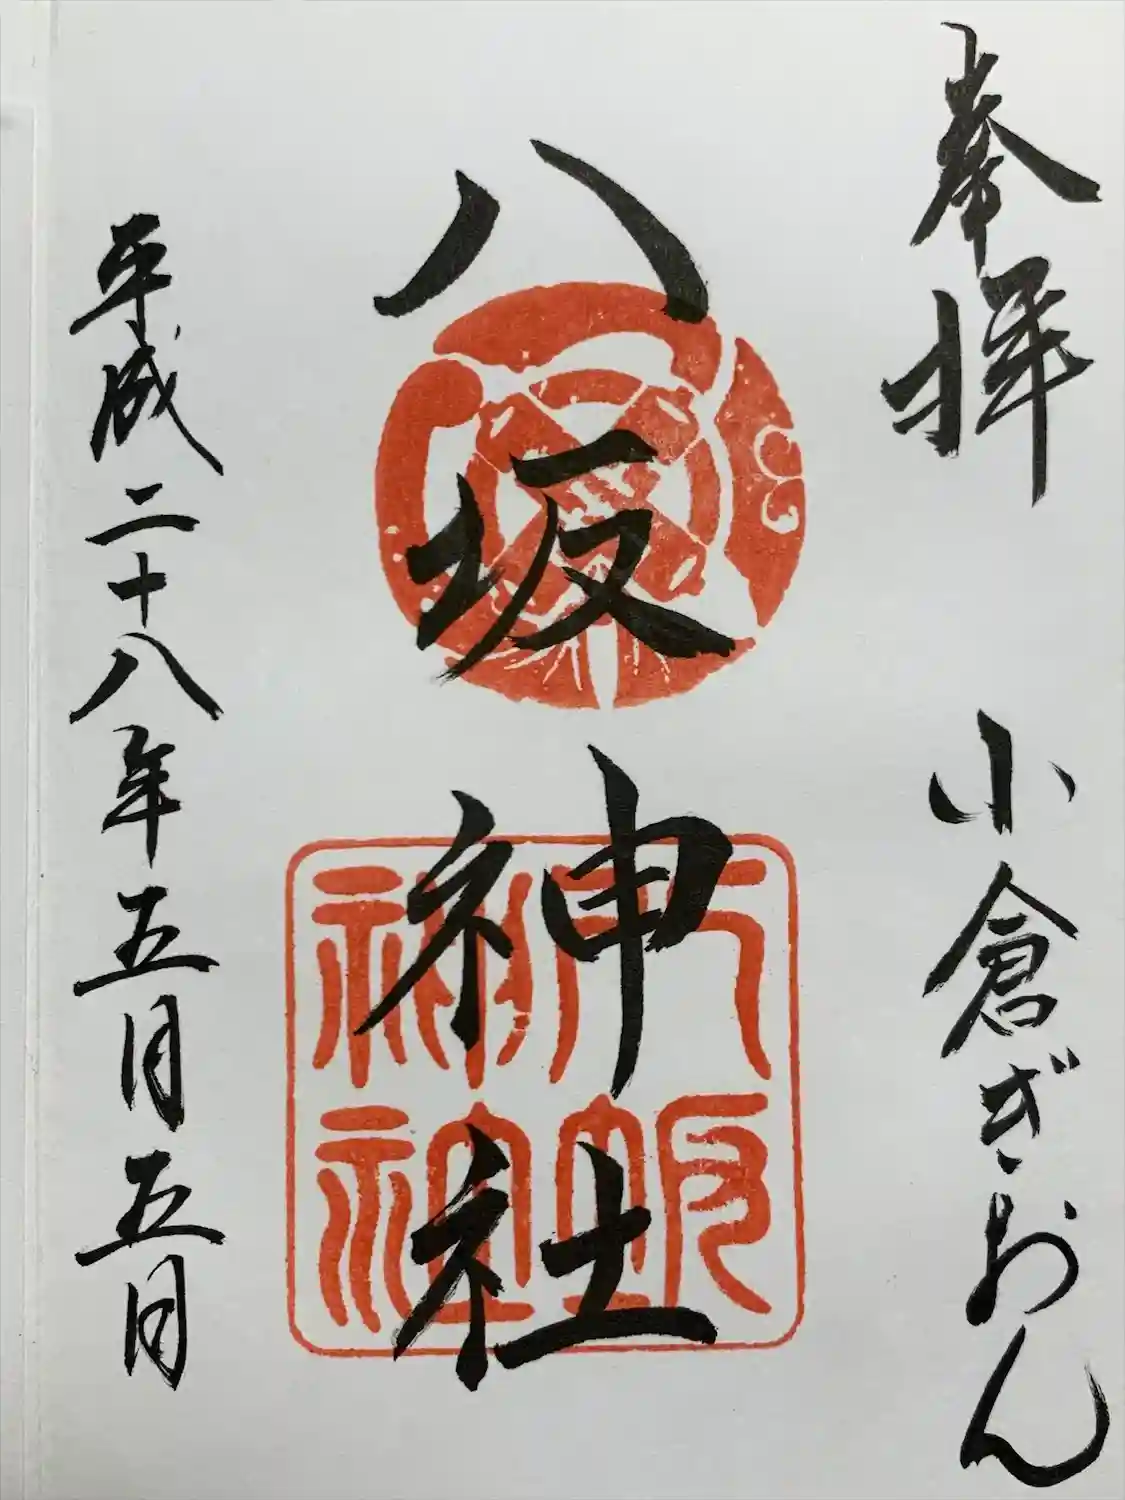 奉拝
小倉ぎおん
八坂神社
八坂神社
平成二十八年五月五日